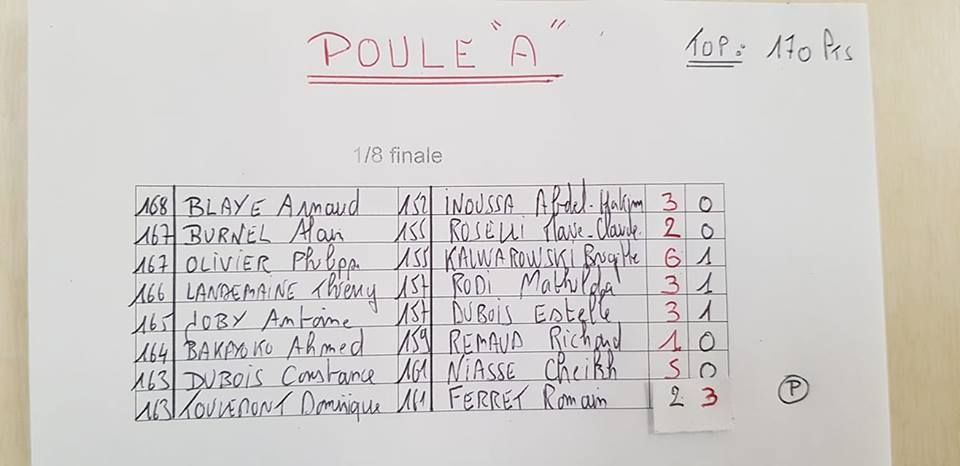 POULE "A"
TOP: 170 Pts
1/8 finale
168 BLAYE Arnaud 152 INOUSSA Abdel-Hakim 3 0
167 BURNEL Alan 155 ROSELLI Marie-Claude 2 0
167 OLIVIER Philipp 155 KALWAROWSKI Brigitte 6 1
166 LANDEMAINE Thierry 157 RODI Mathilda 3 1
165 JOBY Antoine 157 DUBOIS Estelle 3 1
164 BAKAYOKO Ahmed 159 REMAUD Richard 1 0
163 DUBOIS Constance 161 NIASSE Cheikh 5 0
163 Dominique 161 FERRET Romain 2 3
P